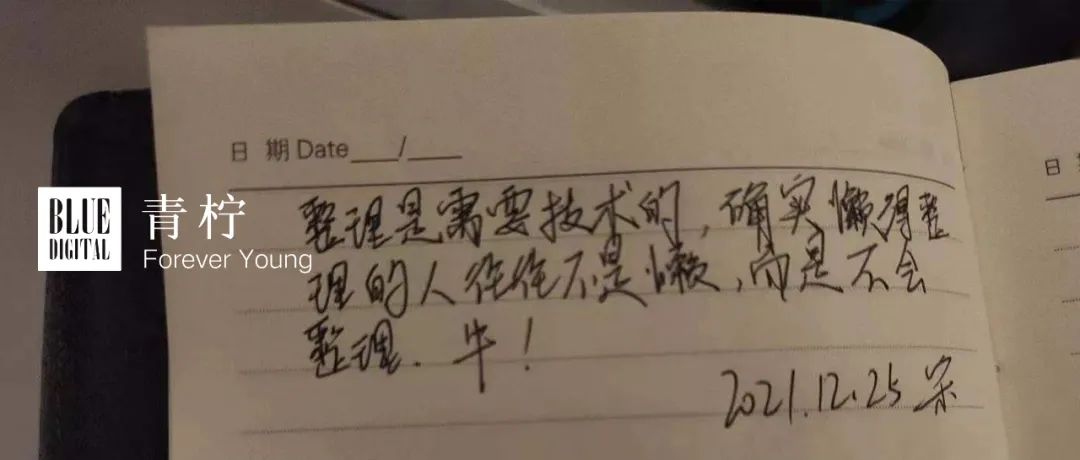 日 期 Date___/___
日
BLUE
DIGITAL
青柠
Forever Young
整理是需要技术的，确实懒得整
理的人往往不是懒，而是不会
整理．牛！
2021.12.25 宋